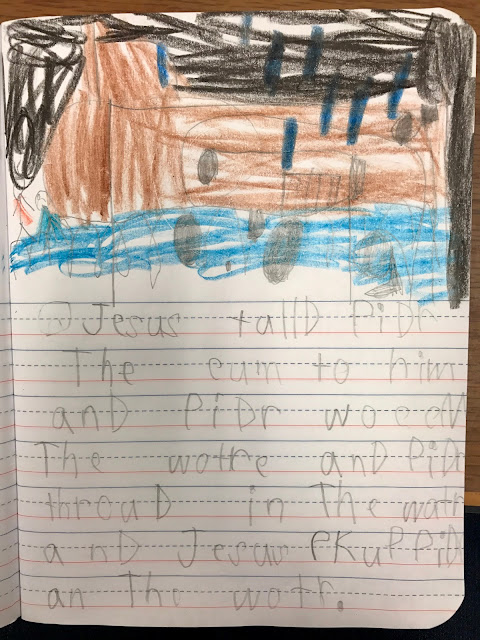 Jesus talld PiDr
The cum to him
anD PiDr woccd
The wotre anD PiDr
throuD in The watr
anD Jesus PKuP PiDr
an The wotr.